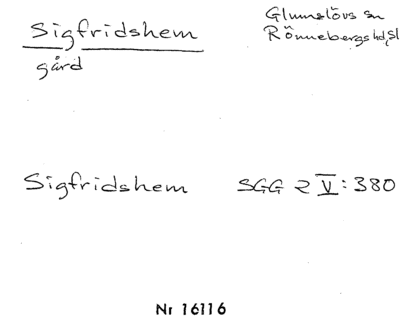 Sigfridshem
gård
Glumslövs sn
Rönnebergs hd, Sk
Sigfridshem SGG 2 V: 380
Nr 16116